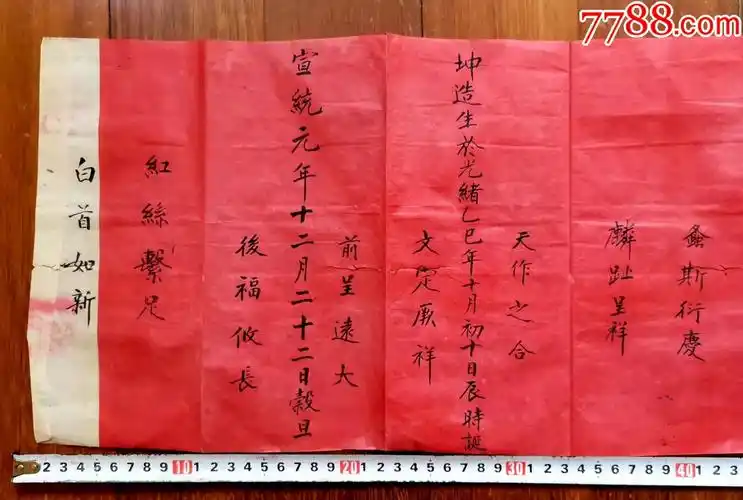 7788.com
螽斯衍慶
麟趾呈祥
天作之合
坤造生於光緒乙巳年十月初十日辰時誕
文定厥祥
前呈遠大
宣統元年十二月二十二日穀旦
後福攸長
紅絲繫足
白首如新
2 3 4 5 6 7 8 9 10 1 2 3 4 5 6 7 8 9 20 1 2 3 4 5 6 7 8 9 30 1 2 3 4 5 6 7 8 9 40 1 2